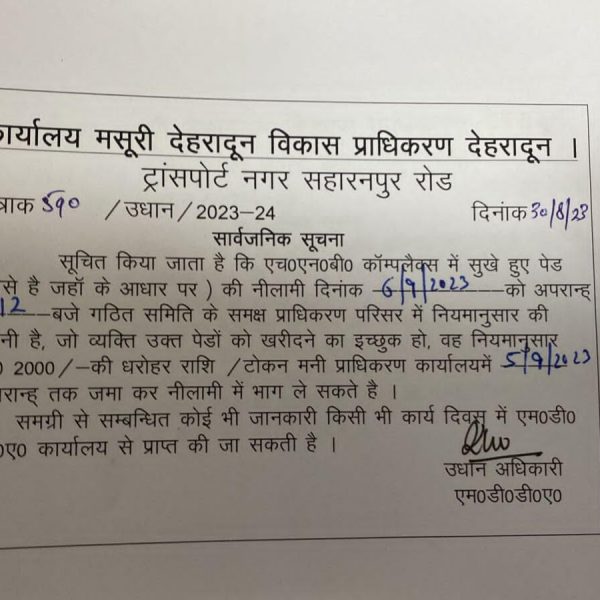 कार्यालय मसूरी देहरादून विकास प्राधिकरण देहरादून ।
ट्रांसपोर्ट नगर सहारनपुर रोड
त्राक 590 /उधान/2023-24 दिनांक 30/8/23
सार्वजनिक सूचना
सूचित किया जाता है कि एच0एन0बी0 कॉम्पलैक्स में सुखे हुए पेड
से है जहॉ के आधार पर ) की नीलामी दिनांक 6/9/2023 को अपरान्ह्
12 बजे गठित समिति के समक्ष प्राधिकरण परिसर में नियमानुसार की
नी है, जो व्यक्ति उक्त पेडों को खरीदने का इच्छुक हो, वह नियमानुसार
0 2000/-की धरोहर राशि /टोकन मनी प्राधिकरण कार्यालयमें 5/9/2023
रान्ह् तक जमा कर नीलामी में भाग ले सकते है ।
समग्री से सम्बन्धित कोई भी जानकारी किसी भी कार्य दिवस में एम0डी0
0ए0 कार्यालय से प्राप्त की जा सकती है ।
उधान अधिकारी
एम0डी0डी0ए0